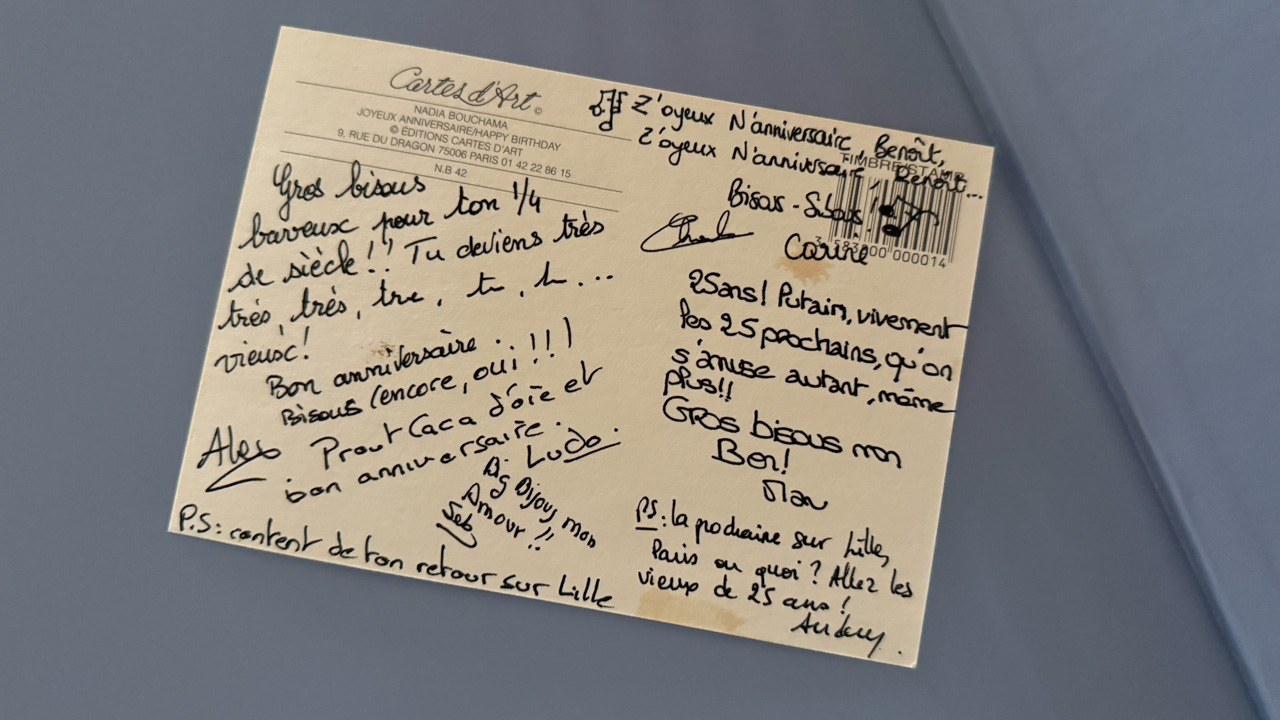 Cartes d'Art ©
NADIA BOUCHAMA
JOYEUX ANNIVERSAIRE/HAPPY BIRTHDAY
© ÉDITIONS CARTES D'ART
9, RUE DU DRAGON 75006 PARIS 01 42 22 86 15
N.B 42
Gros bisous
baveux pour ton 1/4
de siècle !! Tu deviens très
très, très, tre, tr, t...
vieux!
Bon anniversaire..
Bisous (encore, oui !!!)
Alex
Prout Caca d'oie et
bon anniversaire.
Ludo.
Big Bijous mon
Amour !!
Seb
P.S: content de ton retour sur Lille
Z'oyeux N'anniversaire, Benoît,
Z'oyeux N'anniversaire, Benoît...
TIMBRE/STAMP
Bisous -
Carine
3 583000 000014
25ans! Putain, vivement
les 25 prochains, qu'on
s'amuse autant, même
plus!!
Gros bisous mon
Ben!
Man
PS: la prochaine sur Lille,
Paris ou quoi? Allez les
vieux de 25 ans!
Audrey.